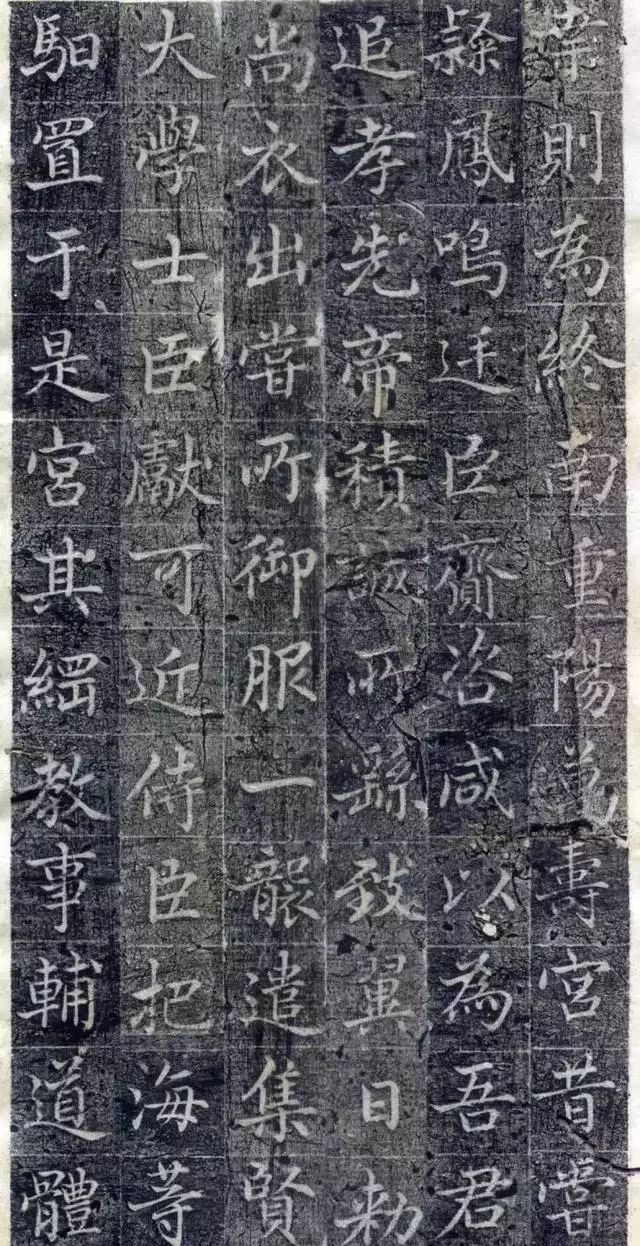 葉則為終南重陽萬壽宮昔嘗
鷚鳳鳴廷臣齎咨咸以為吾君
追孝先帝積誠所繇致翼日敕
尚衣出嘗所御服一襲遣集賢
大學士臣獻可近侍臣把海等
馹置于是宮其綱教事輔道體